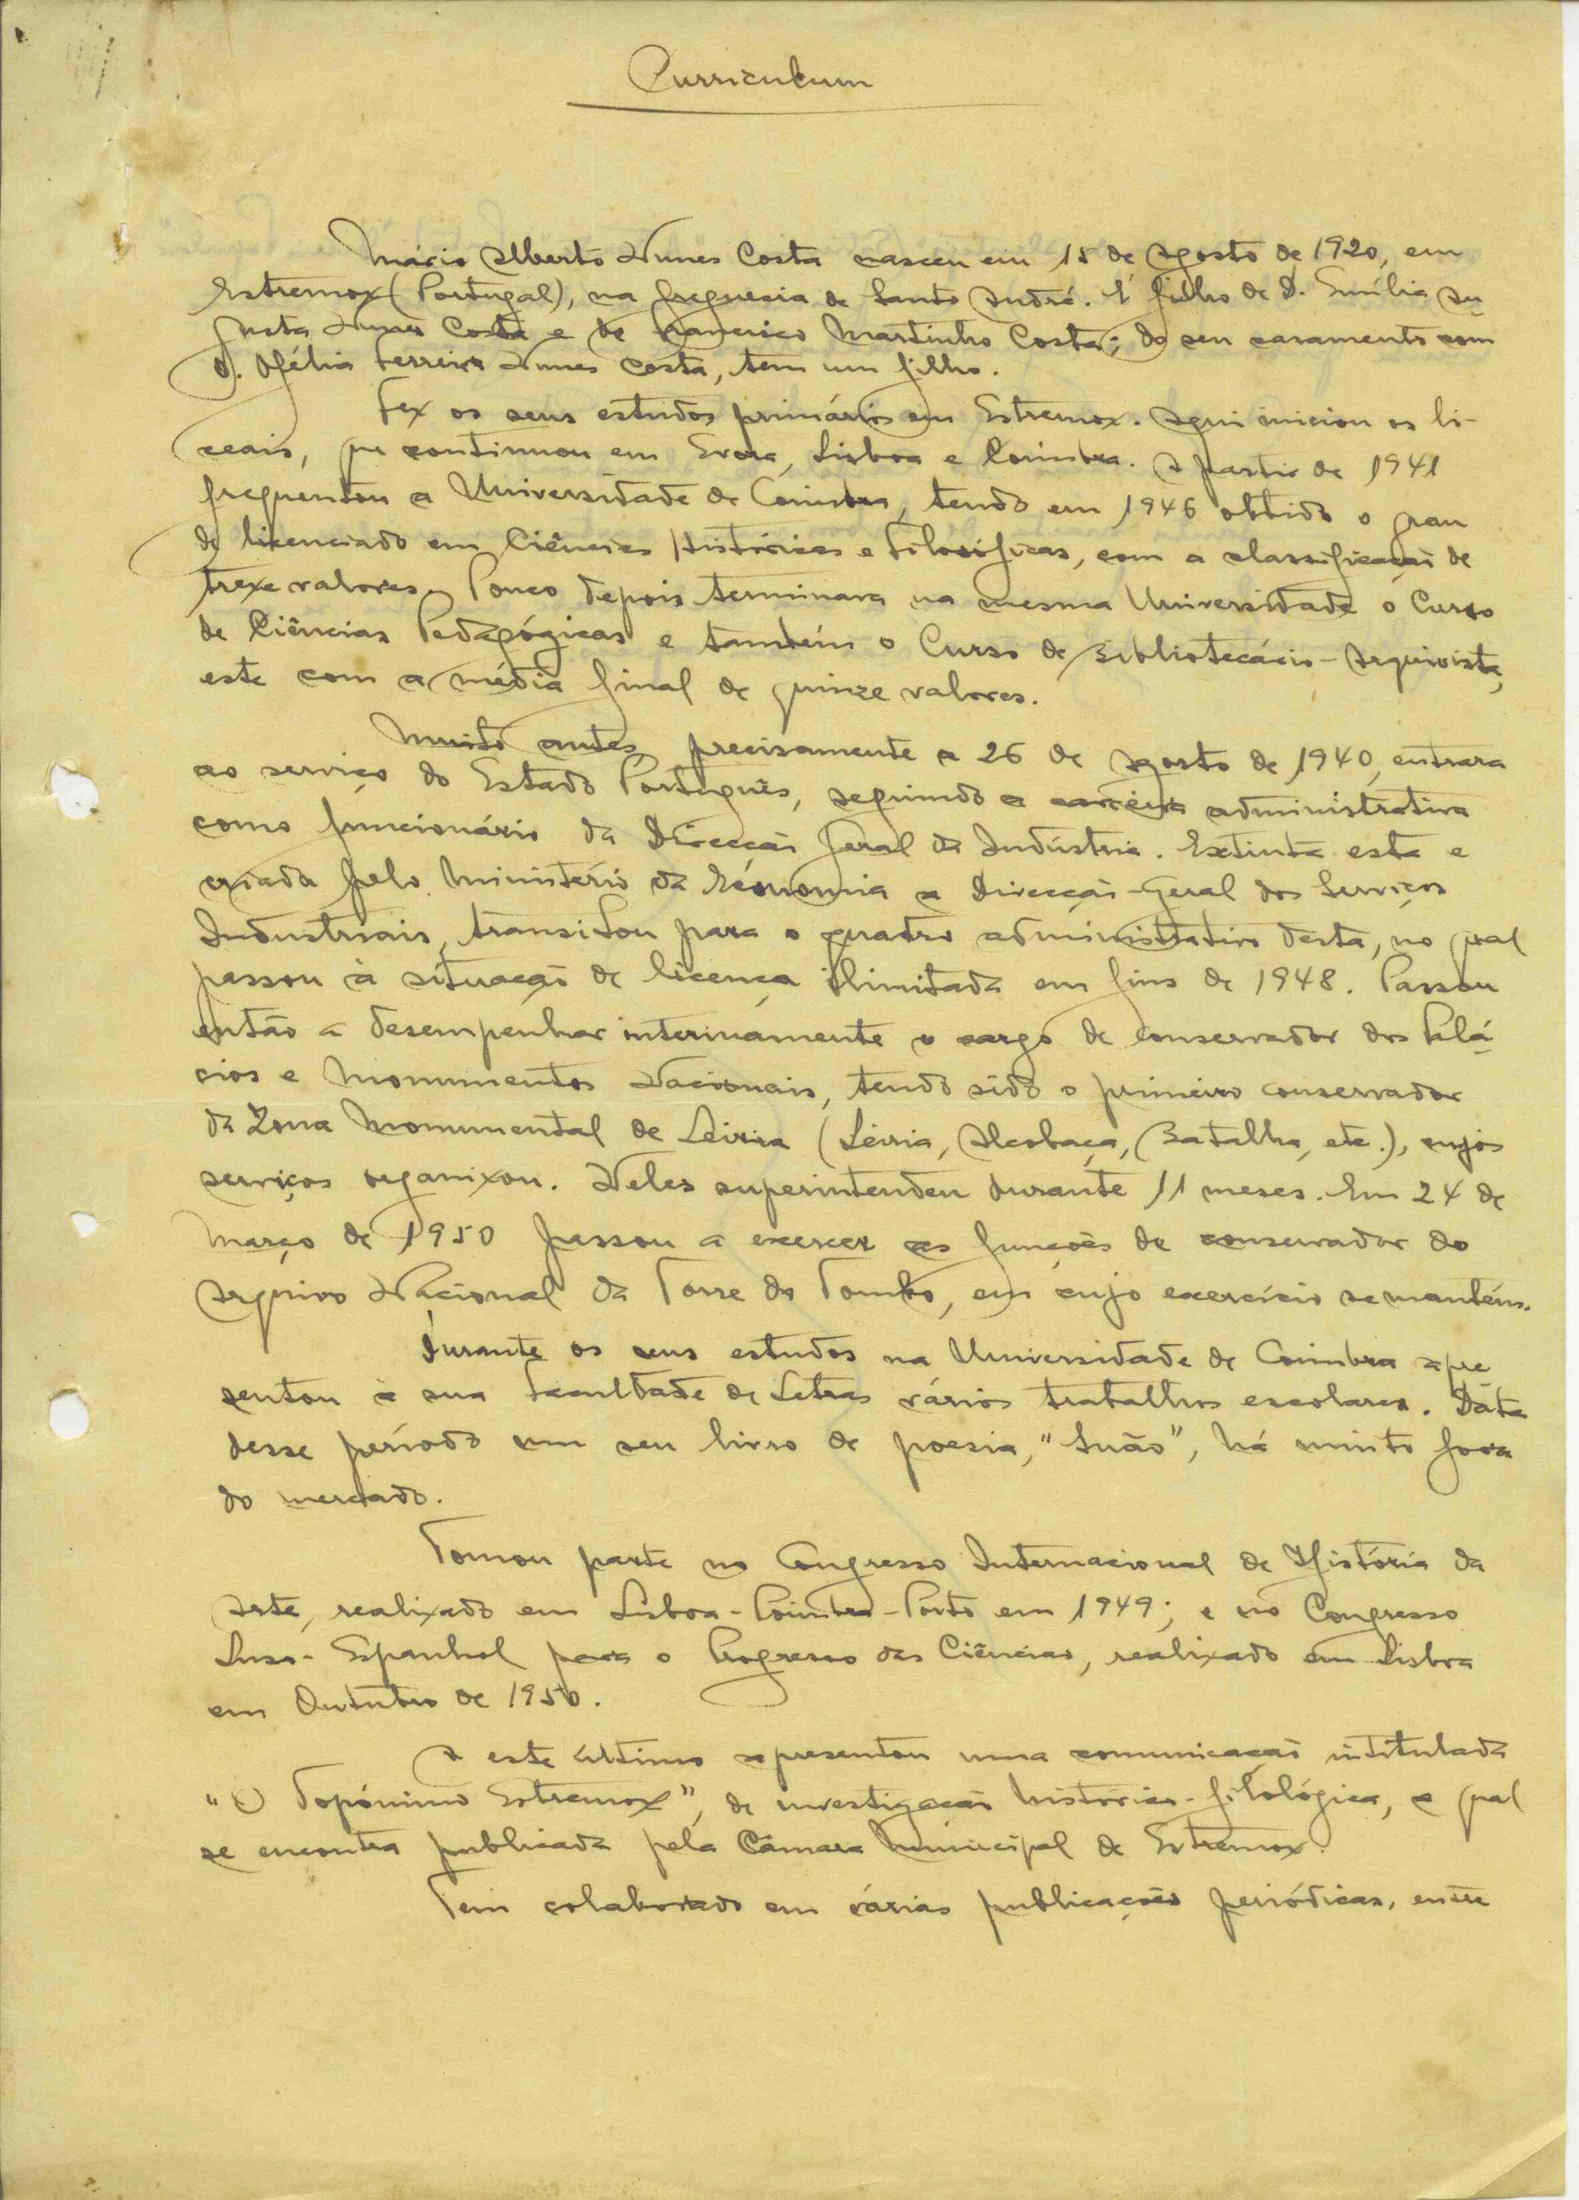 Curriculum
Mário Alberto Nunes Costa nasceu em 15 de Agosto de 1920, em
Estremoz (Portugal), na freguesia de Santo André. É filho de D. Emília Au-
gusta Nunes Costa e de Francisco Martinho Costa; do seu casamento com
D. Ofélia Ferreira Nunes Costa, tem um filho.
Fez os seus estudos primários em Estremoz. Aqui iniciou os li-
ceais, que continuou em Évora, Lisboa e Coimbra. A partir de 1941
frequentou a Universidade de Coimbra, tendo em 1946 obtido o grau
de licenciado em Ciências Históricas e Filosóficas, com a classificação de
treze valores. Pouco depois terminava na mesma Universidade o Curso
de Ciências Pedagógicas e também o Curso de Bibliotecário-Arquivista,
este com a média final de quinze valores.
Muito antes, precisamente a 26 de Agosto de 1940, entrara
ao serviço do Estado Português, seguindo a carreira administrativa
como funcionário da Direcção Geral da Indústria. Extinta esta e
criada pelo Ministério da Economia a Direcção-Geral dos Serviços
Industriais, transitou para o quadro administrativo desta, no qual
passou à situação de licença ilimitada em fins de 1948. Passou
então a desempenhar interinamente o cargo de conservador dos Palá-
cios e Monumentos Nacionais, tendo sido o primeiro conservador
da Zona Monumental de Leiria (Leiria, Alcobaça, Batalha, etc.), cujos
serviços organizou. Neles superintendeu durante 11 meses. Em 24 de
Março de 1950 passou a exercer as funções de conservador do
Arquivo Nacional da Torre do Tombo, em cujo exercício se mantém.
Durante os seus estudos na Universidade de Coimbra apre
sentou à sua Faculdade de Letras vários trabalhos escolares. Data
desse período um seu livro de poesia, "Suão", há muito fora
do mercado.
Tomou parte no Congresso Internacional de História da
Arte, realizado em Lisboa-Coimbra-Porto em 1949; e no Congresso
Luso-Espanhol para o Progresso das Ciências, realizado em Lisboa
em Outubro de 1950.
A este último apresentou uma comunicação intitulada
"O Topónimo Estremoz", de investigação histórico-filológica, a qual
se encontra publicada pela Câmara Municipal de Estremoz.
Tem colaborado em várias publicações periódicas, entre